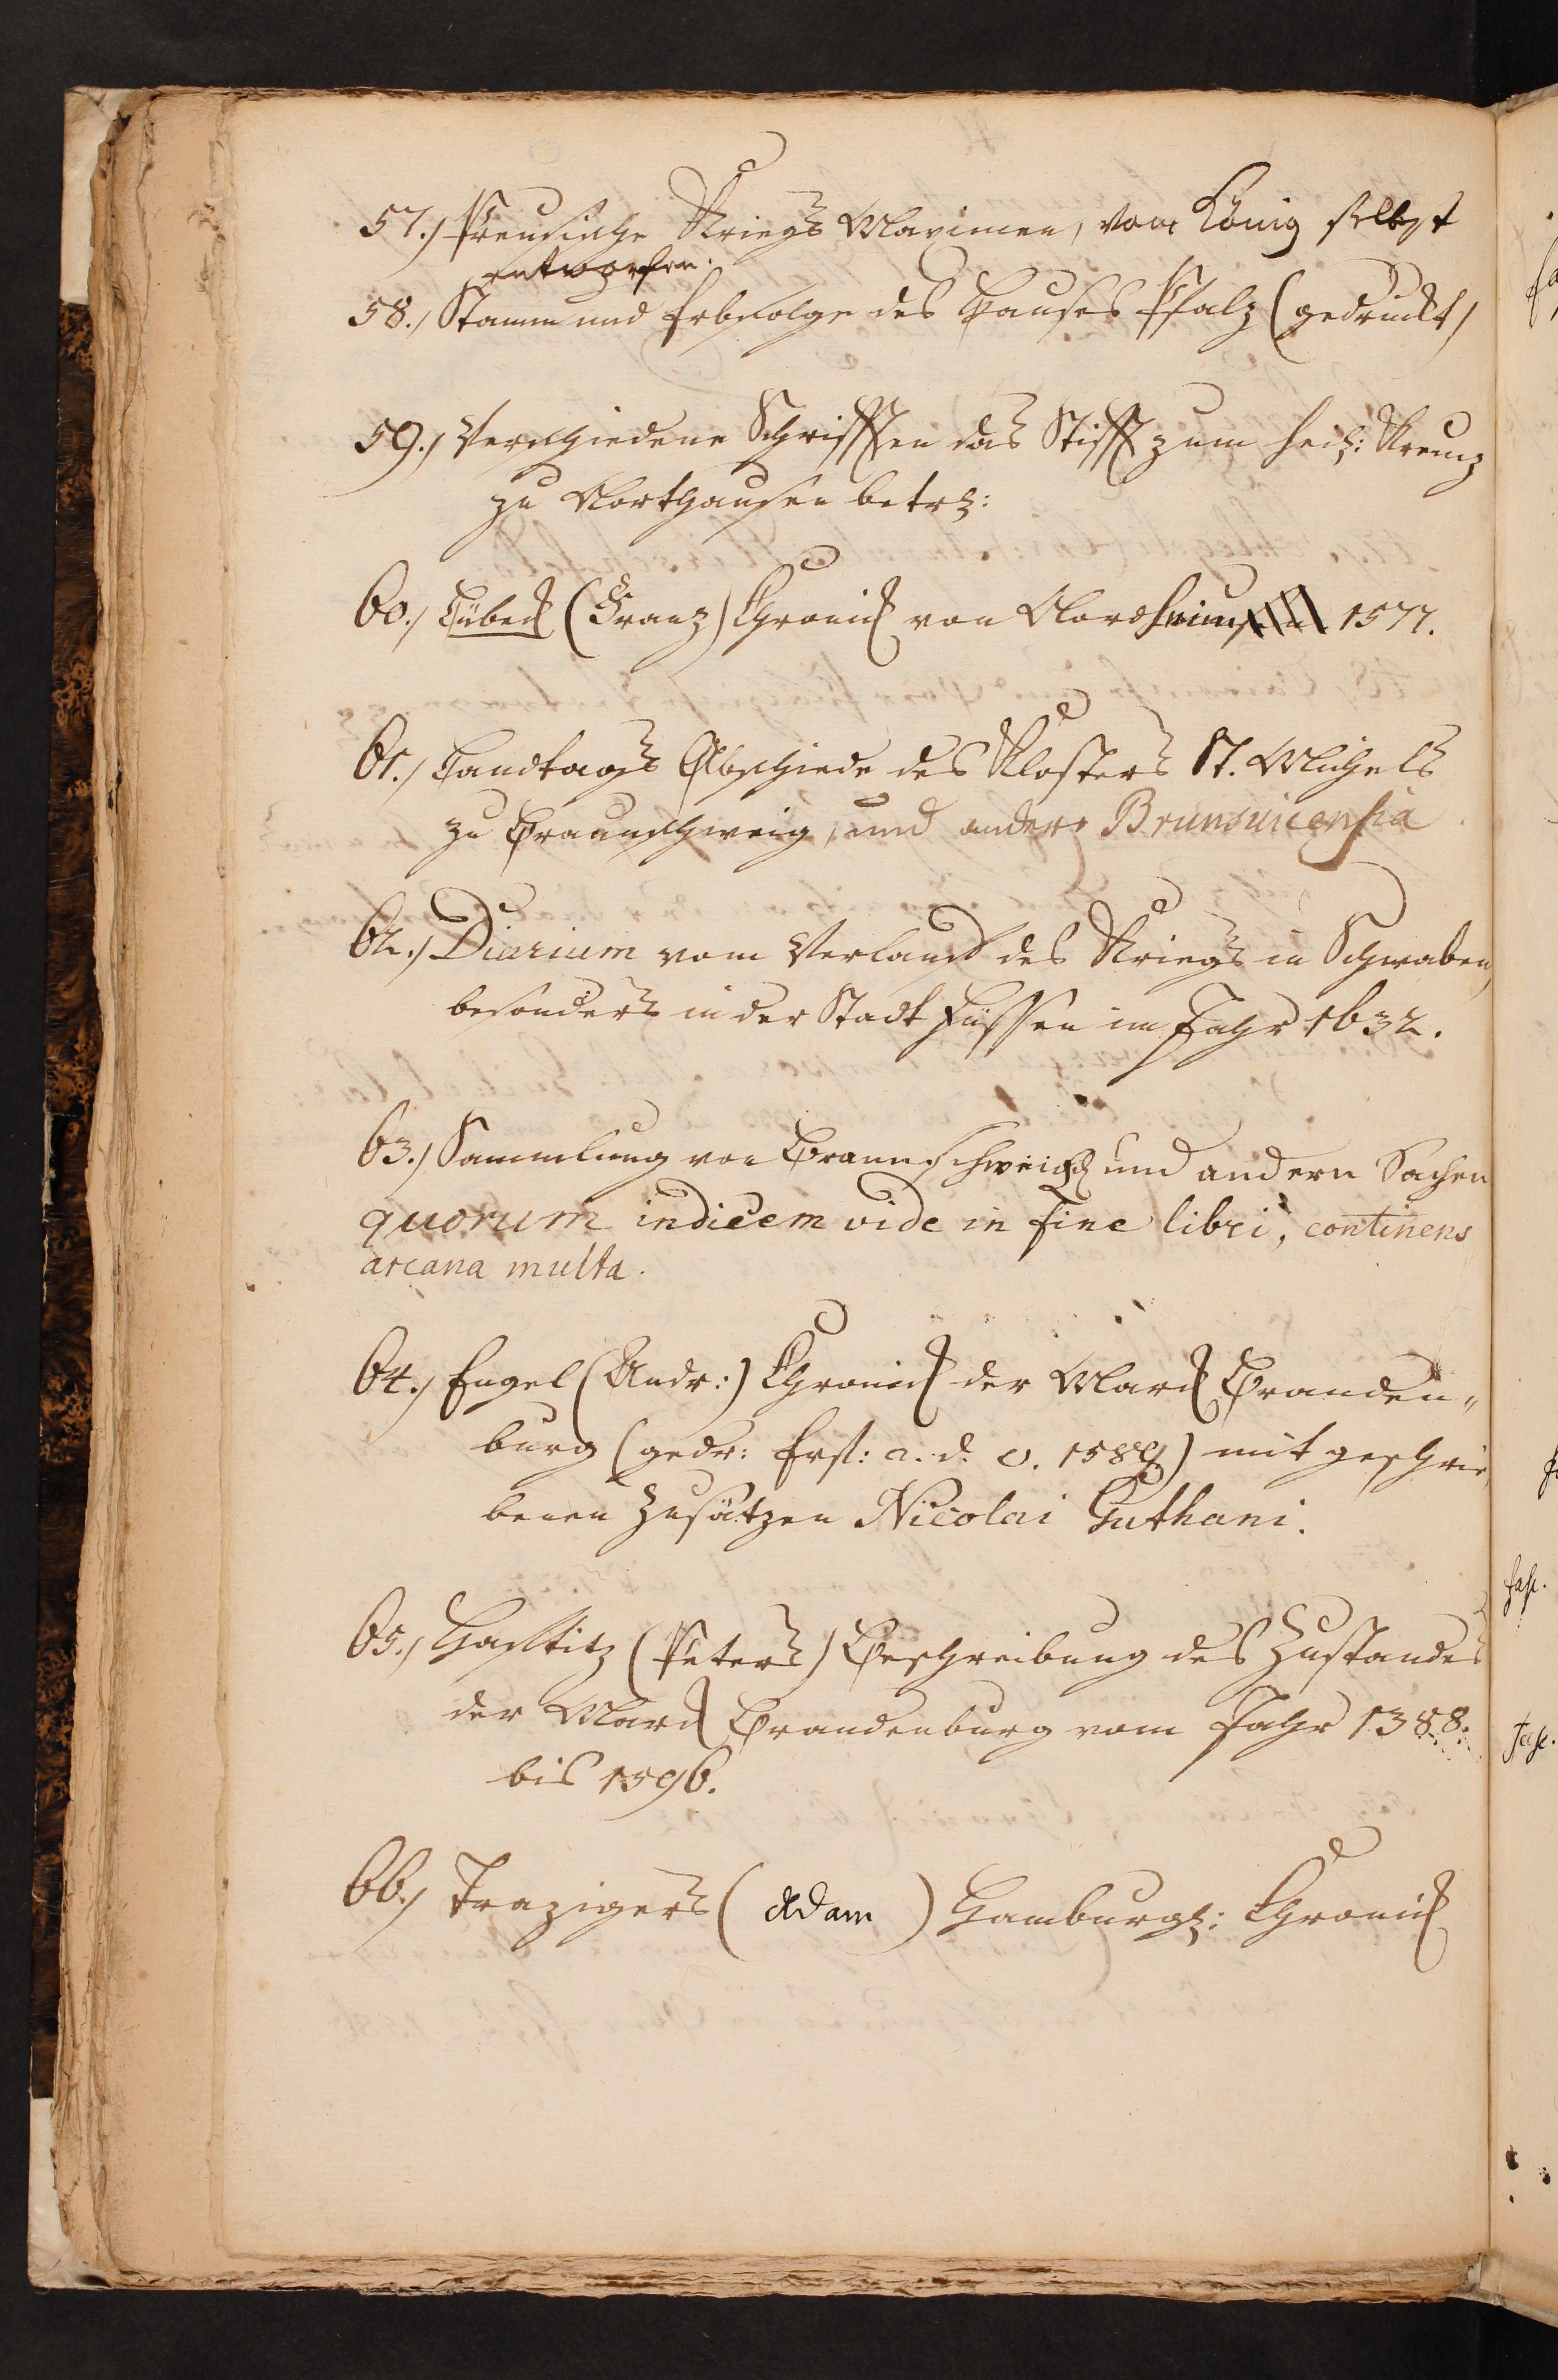 57.) Preusische Kriegs Maximen, vom König selbst
entworfen.
58.) Stamm und Erbfolge des Hauses Pfalz (gedruckt)
59.) Verschiedene Schrifften das Stifft zum heil: Kreuz
zu Northausen betr:
60.) Lübeck (Franz) Chronick von Nordheim 1577.
61.) Landtags Abschiede des Klosters St. Michels
zu Braunschweig, und andere Brunsuicensia
62.) Diarium vom Verlauf des Kriegs in Schwaben,
besonders in der Stadt Füssen im Jahr 1632.
63.) Sammlung von Braunschweig. und andern Sachen
quorum indicem vide in fine libri, continens
arcana multa.
64.) Engel (Andr:) Chronick der Marck Branden„
burg (gedr: Erf: a. d. O. 1589.) mit geschrie„
benen Zusätzen Nicolai Guthani.
65.) Hafftitz (Peters) Beschreibung des Zustandes
der Marck Brandenburg vom Jahr 1388.
bis 1596.
66.) Trazigers (Adam) Hamburg: Chronick
fasc.
fasc.